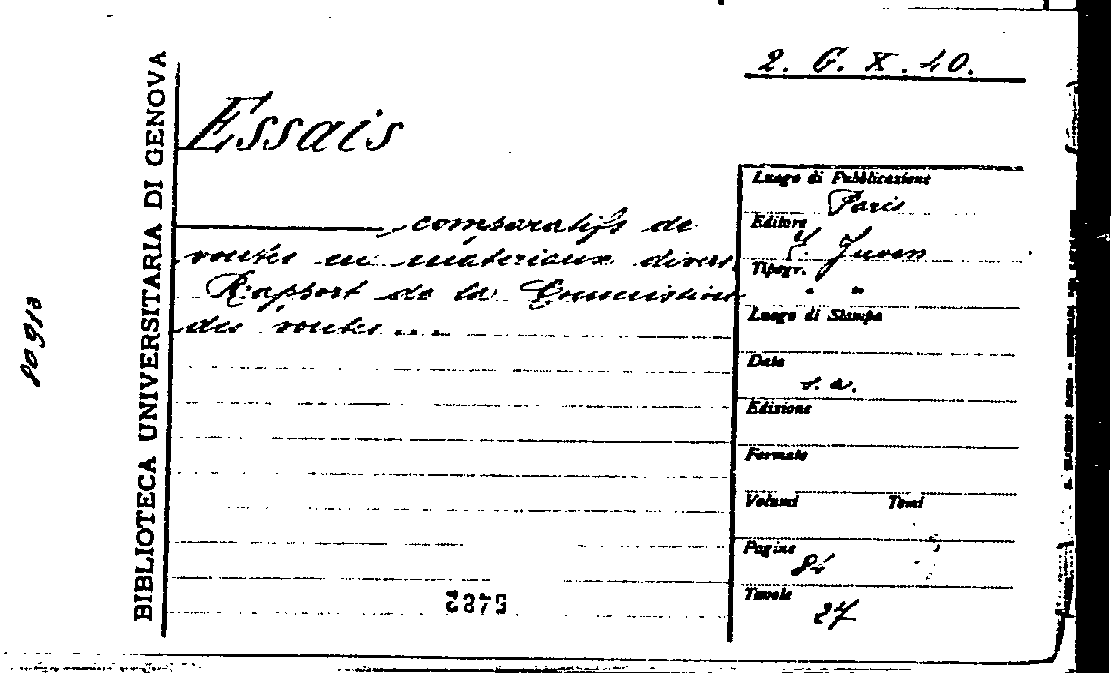 BIBLIOTECA UNIVERSITARIA DI GENOVA
2. G. X. 40.
Essais
, comparatifs de
voutes en matériaux divers.
Rapport de la Commission
des voutes...
Luogo di Pubblicazione
Paris
Editore
F. Juven
Tipogr.
" "
Luogo di Stampa
Data
s. a.
Edizione
Formato
Volumi Tomi
Pagine
84
Tavole
27